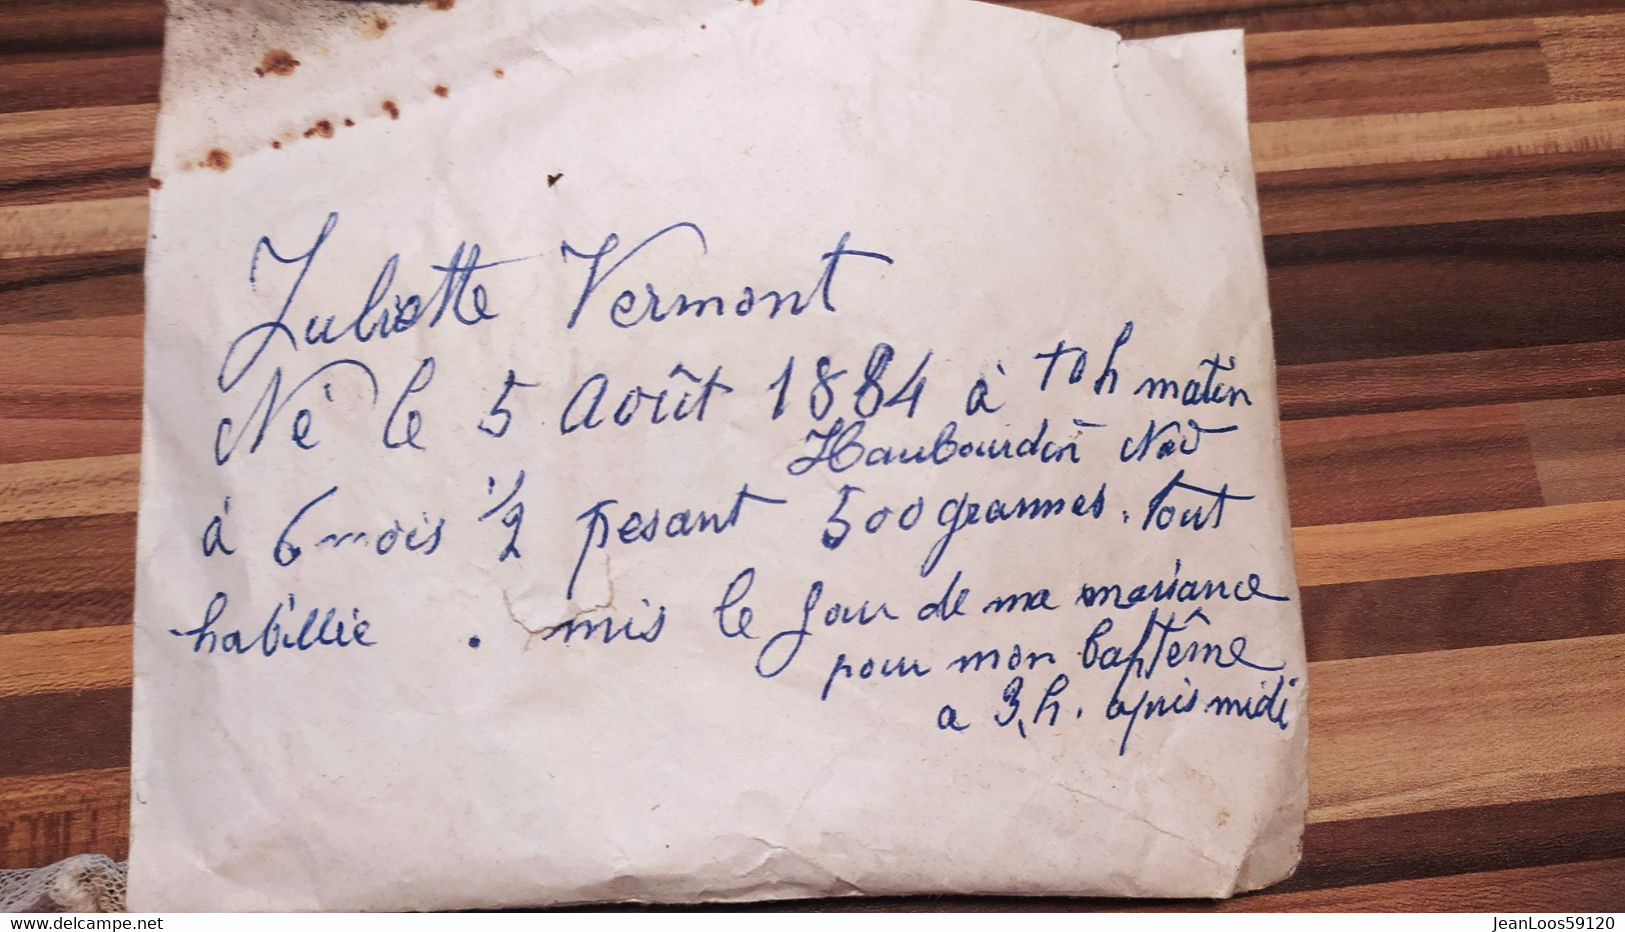 Juliette Vermont
Né le 5 Août 1884 à 10h matin
Haubourdin Nord
à 6 mois 1/2 pesant 500 grammes. tout
habillée . mis le jour de ma naisance
pour mon baptême
a 3.h. après midi
www.delcampe.net
JeanLoos59120